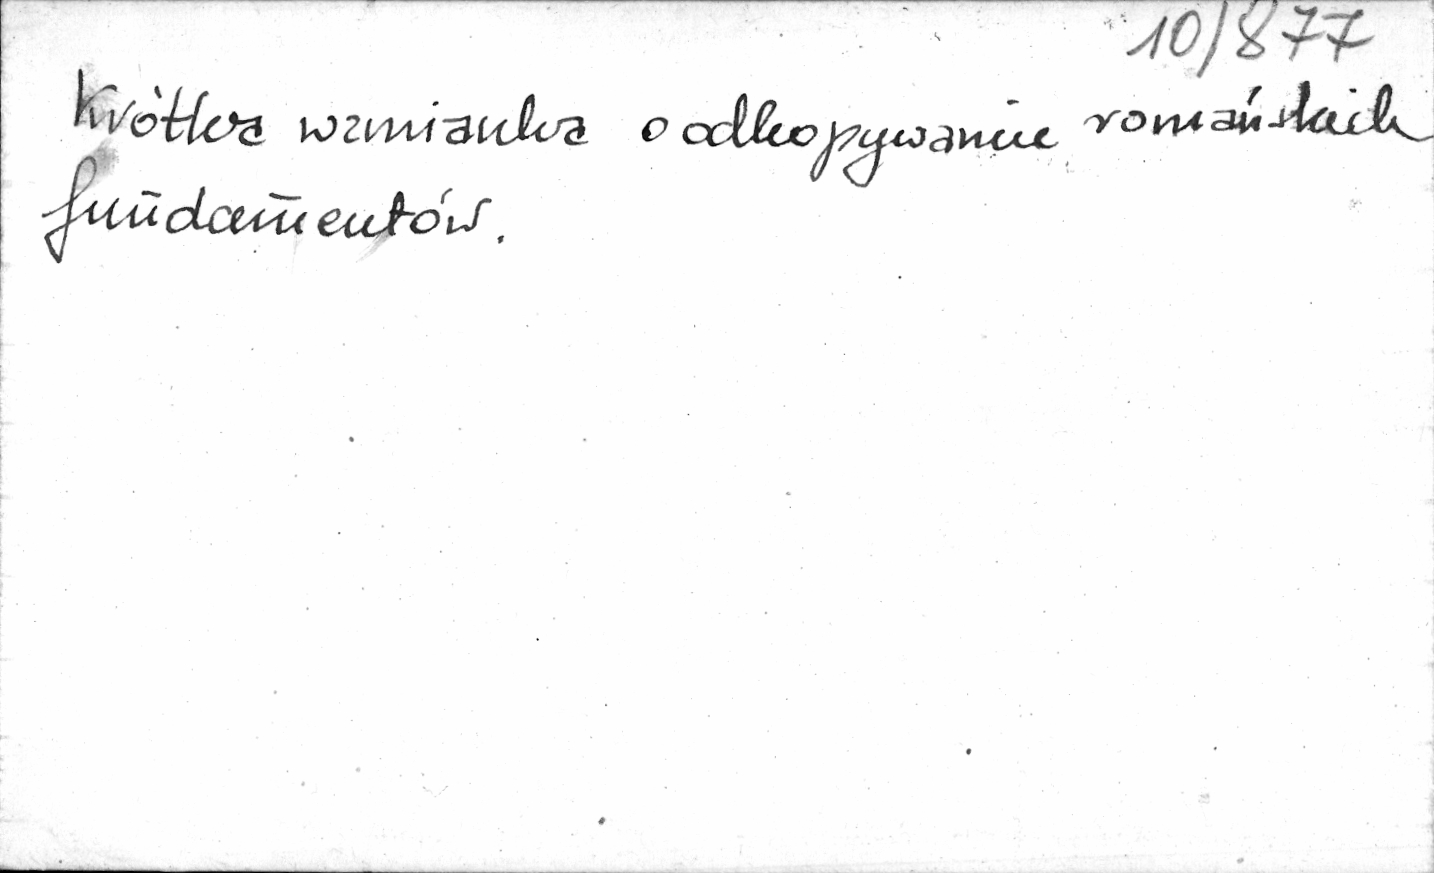 10/877
Krótka wzmianka o odkopywanie romańskich
fundamentów.